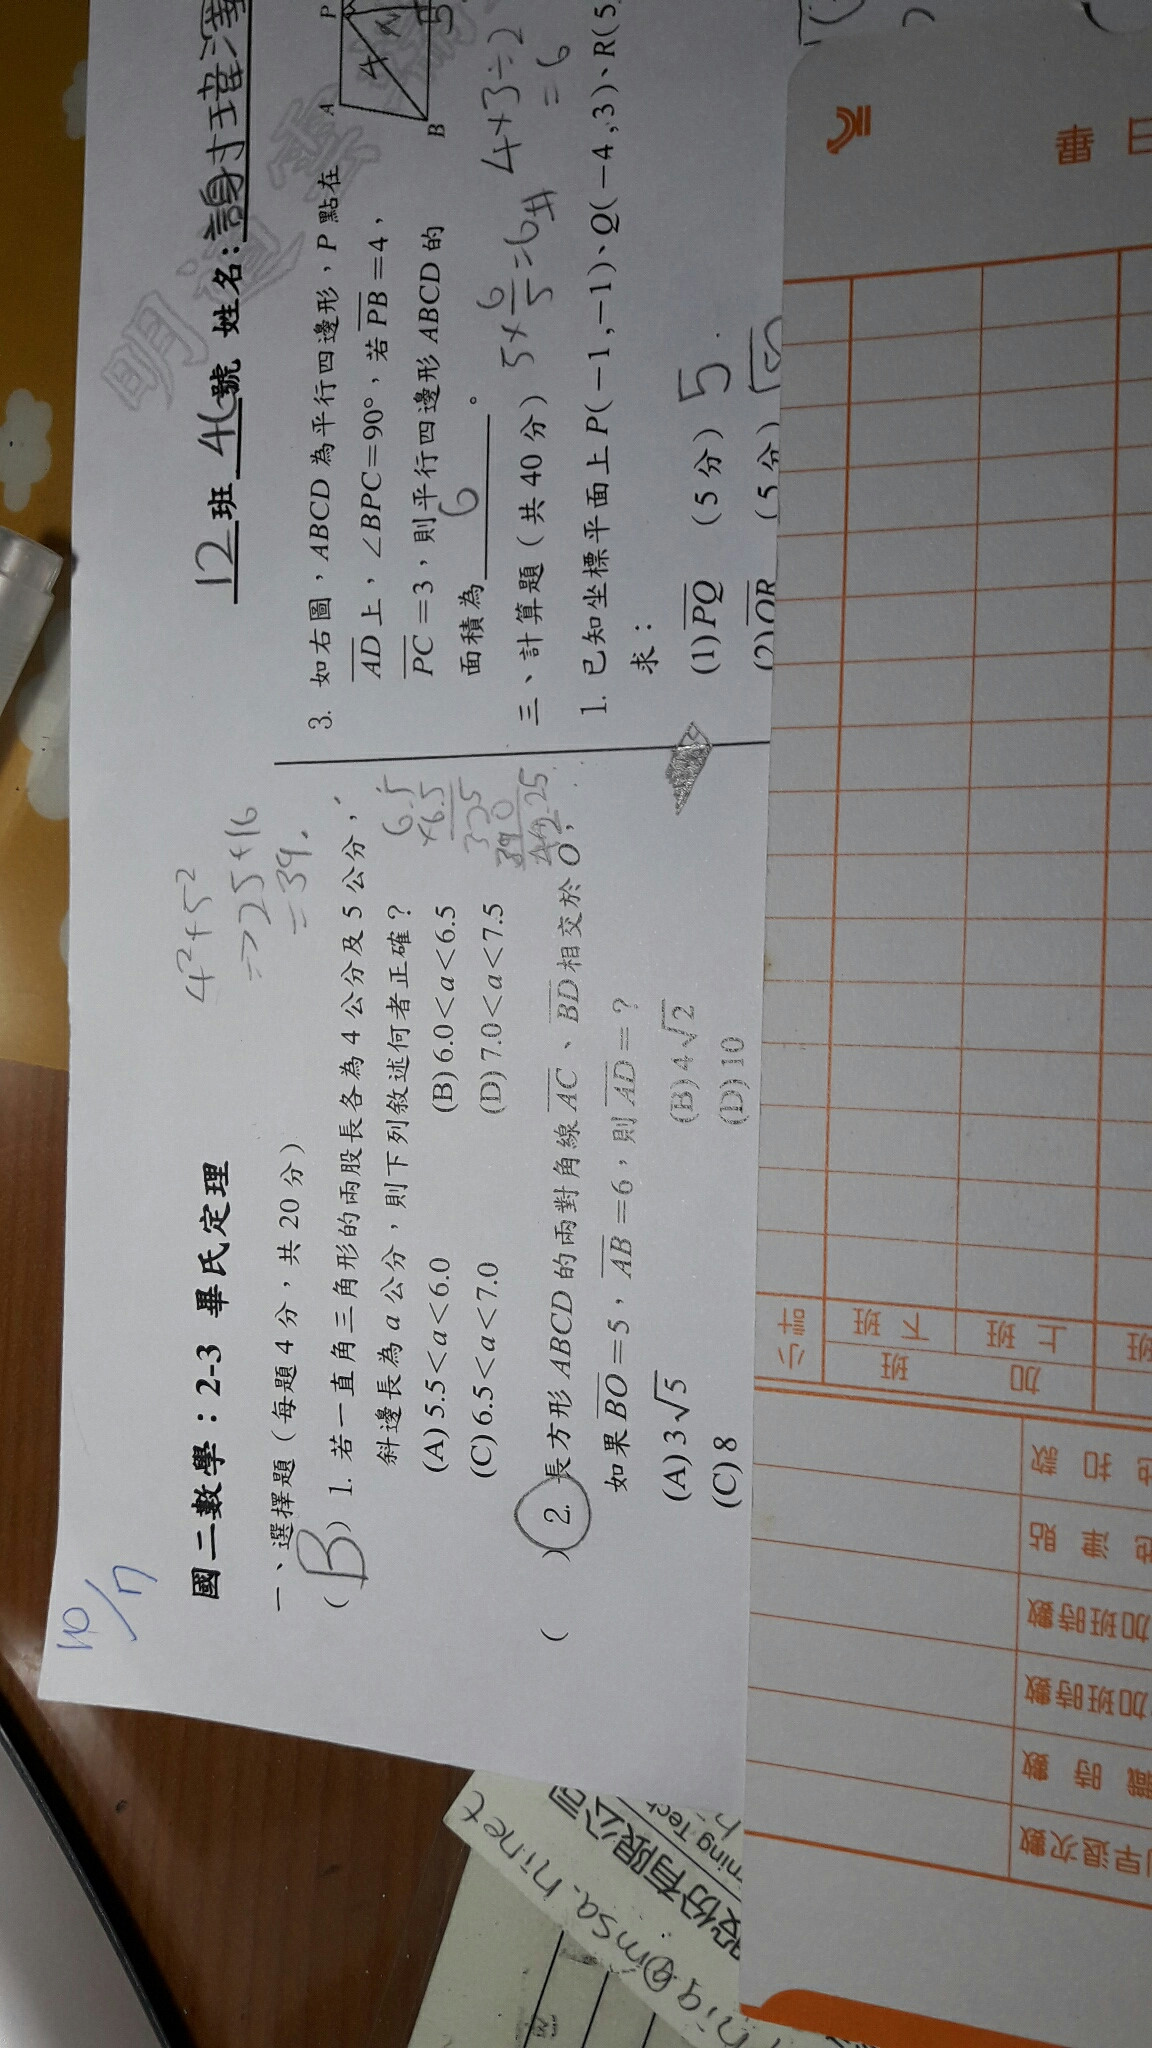 10/7
國二數學：2-3 畢氏定理
12班 46號 姓名：
4²+5²
=>25+16
=39.
一、選擇題（每題4分，共20分）
（B）1. 若一直角三角形的兩股長各為4公分及5公分，
斜邊長為a公分，則下列敘述何者正確？
(A)5.5<a<6.0 (B)6.0<a<6.5
(C)6.5<a<7.0 (D)7.0<a<7.5
6.5
×6.5
325
390
42.25
（ ）2. 長方形ABCD的兩對角線AC、BD相交於O，
如果BO=5，AB=6，則AD=？
(A)3√5 (B)4√2
(C)8 (D)10
3. 如右圖，ABCD為平行四邊形，P點在
AD上，∠BPC=90°，若PB=4，
PC=3，則平行四邊形ABCD的
面積為 6 。
A P
4
B
5
4×3÷2
=6
5×6/5=6#
三、計算題（共40分）
1. 已知坐標平面上P(-1,-1)、Q(-4,3)、R(5
求：
(1)PQ （5分） 5
(2)OR （5分）
明道
畢
日
小計
下班
上班
加班
扣款
津貼
加班時數
加班時數
時數
早退次數
股份有限公司
ning Tech
@msa.hinet